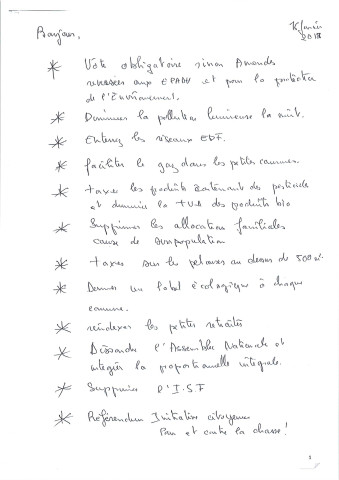 Bonjour,
16 Janvier
2019
* Vote obligatoire sinon Amende
reversées aux EPADH et pour la protection
de l'Environnement.
* Diminuer la pollution lumineuse la nuit.
* Enterrez les réseaux EDF.
* faciliter le gaz dans les petites communes.
* taxer les produits contenant des pesticides
et diminuer la TVA des produits bio
* Supprimer les allocations familiales
cause de surpopulation
* taxes sur les pelouses au dessus de 500 m².
* Donner un label écologique à chaque
commune.
* réindexer les petites retraites
* Dissoudre l'Assemblée Nationale et
intégrer la proportionnelle intégrale.
* Supprimer l'I.S.F
* Référendum Initiative citoyenne
Pour et contre la chasse!